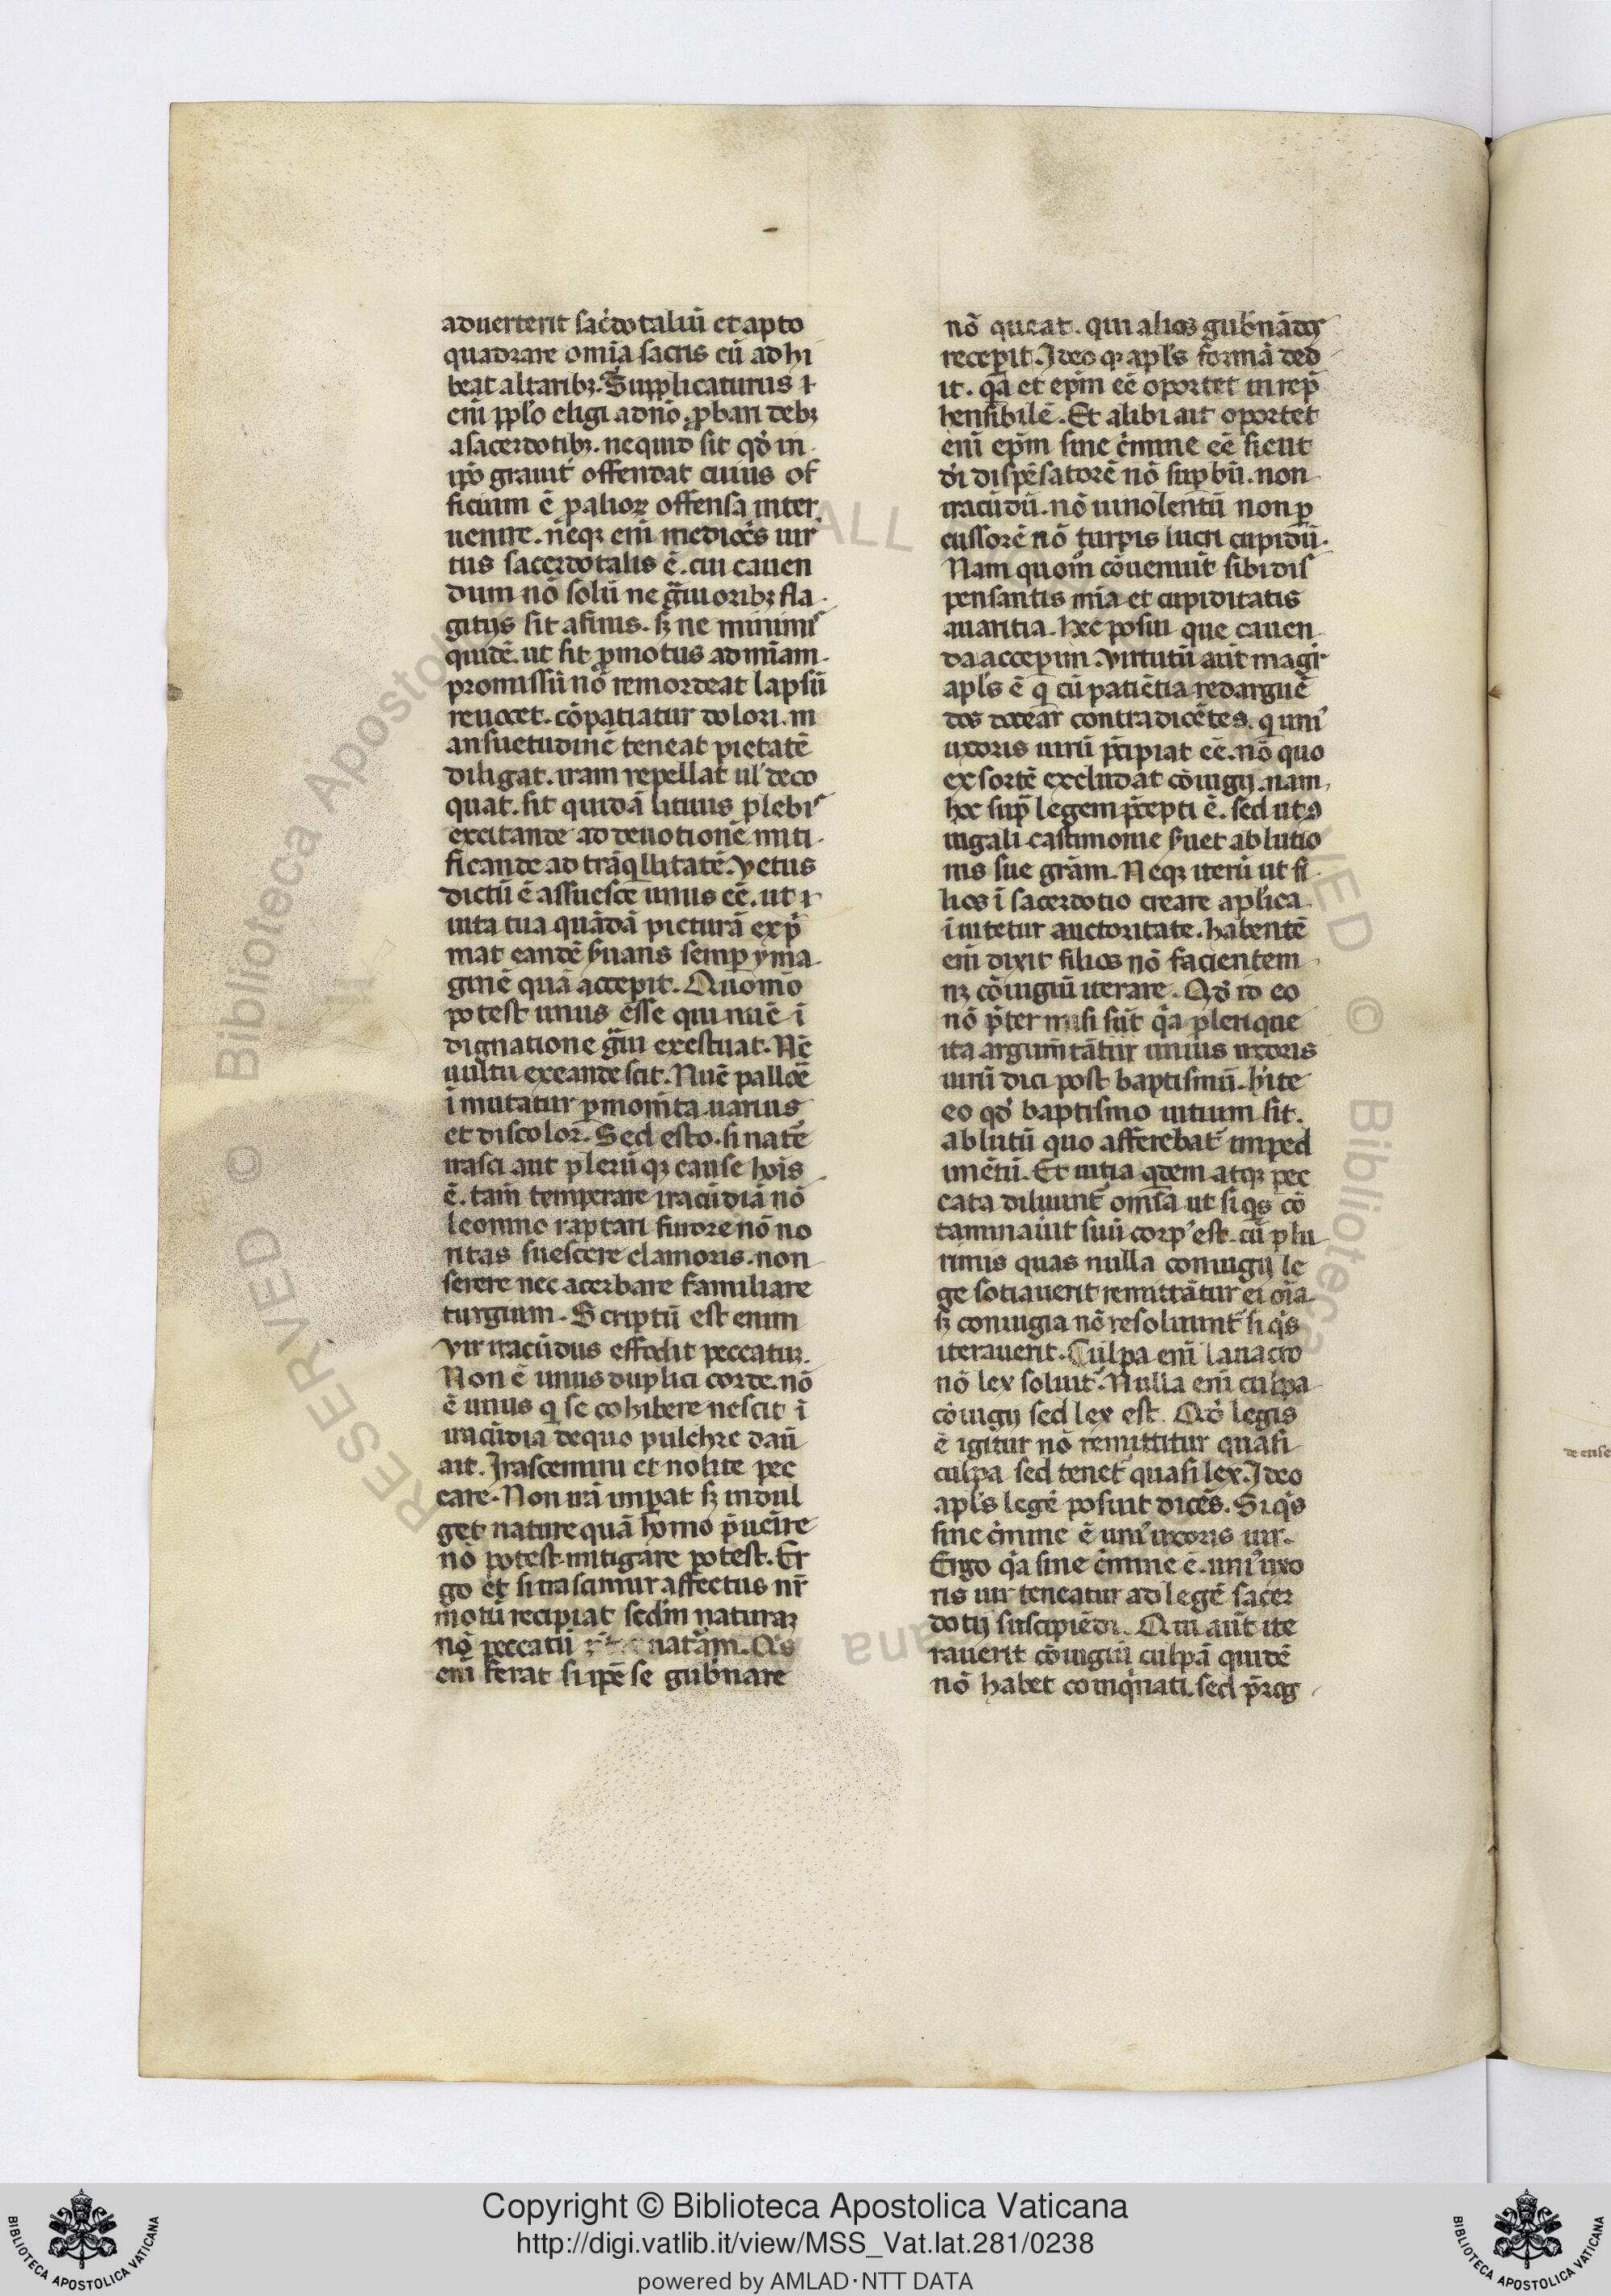 aduerterit sac͛dotaliū et apto
quadrare omīa sacris cū adhi
beat altaribꝫ. Supplicaturus ⁊
eni̅ pplo eligi ad no̅ ꝓbari debꝫ
a sacerdotibꝫ. ne quid sit qd̕ in
ipo̅ grauit͛ offendat cuius of
ficium ē p alioꝝ offensa inter
uenire. neqꝫ eni̅ medioc͛s uir
tus sacerdotalis ē. cui cauen
dum nō solū ne g̃uioribꝫ fla
gitijs sit afinis. sꝫ ne minimis
quidē. ut sit p̱motus ad mīam
promissū nō remordeat lapsū
reuocet. cōpatiatur dolori. m
ansuetudinē teneat pietatē
diligat. iram repellat ul̕ deco
quat. sit quidā lituus plebis
excitande ad deuotionē miti
ficande ad trāq̇llitatē. Vetus
dictū ē assuesce unus eē. ut ⁊
uita tua quādā picturā exp̄
mat eandē s̕uans semp yma
ginē quā accepit. Quomo̅
potest unus esse qui nūc i
dignatione g̃ui exestuat. Nc̄
uultu excandescit. Nūc pallōe
ī mutatur p momīta uarius
et discolor. Sed esto. si nat̄e
irasci aut plerū qꝫ cause hois
ē. tam̅ temperare iracūdiā nō
leonino raptari furore nō no
ritas suescere clamoris. non
serere nec acerbare familiare
iurgium. Scriptū est enim
Vir iracūdus effodit peccatuꝫ.
Non ē unus duplici corde. nō
ē unus q̇ se cohibere nescit ī
iracūdia de quo pulchre dauī
ait. Irascemini et nolite pec
care. Non irā imperat sꝫ indul
get nature quā homo p̄uēire
nō potest mitigare potest. Er
go et si irascimur affectus nr̄
motū recipiat sedm̅ naturaꝫ
nō peccatū natãm. Q̇s
eni̅ ferat si ipē se gub̕nare
nō queat. qui alios gub̕nādos
recepit. Ideo qꝫ apl̕s formā ded
it. q̇a et epm̅ eē oportet inrep̄
hensibilē. Et alibi ait oportet
eni̅ epm̅ sine c̓mine eē sicut
di̅ dispēsatorē nō supbū. non
iracūdū. nō uinolentū non p
cussorē nō turpis lucri cupidū.
Nam quom̅ cōuenūit sibi dis
pensantis mīa et cupiditatis
auaritia. Hec posui que cauen
da accepim. Virtutū aūt magr̄
apl̕s ē q̇ cū patiētia redarguē
dos doceat contradicētes. q̇ unī
uxoris uirū p̄cipiat eē. nō quo
exsortē excludat cōiugij. nam
hoc sup̄ legem p̄cepti ē. sed ut ꝯ
iugali castimonie s̕uet ablutio
nis sue grām. Neqꝫ iterū ut fi
lios ī sacerdotio creare ap̄lica
ī uitetur auctoritate. habentē
eni̅ dixit filios nō facientem
nꝫ cōiugiū iterare. Qd̕ id eo
nō p̄termisi sūt q̇a plerique
ita argum̅tātur unius uxoris
uirū dici post baptismū. h̕ite
eo qd̕ baptismo uitium sit
ablutū quo afferebat͛ imped
imētū. Et uitia q̇dem atqꝫ pec
cata diluunt͛ omīa ut si q̇s cō
taminaūit suū corp͗ est. cū plu
rimis quas nulla coniugij le
ge sotiauerit remittātur ei oīa
sꝫ coniugia nō resoluunt͛ si q̇s
iterauerit. Culpa eni̅ lauacro
nō lex soluit͛. Nulla eni̅ culpa
cōiugij sed lex est. Qd̕ legis
ē igitur nō remittitur quasi
culpa sed tenet͛ quasi lex. Ideo
apl̕s legē posuit dicēs. Si q̇s
sine c̓mine ē uni͗ uxoris uir.
Ergo q̇a sine c̓mine ē. uni͗ uxo
ris uir teneatur ad legē sacer
dotij suscipiēdi. Qui aūt ite
rauerit cōiugiū culpā quidē
nō habet coinq̇nati. sed p̄rog
de cuse
Copyright © Biblioteca Apostolica Vaticana
http://digi.vatlib.it/view/MSS_Vat.lat.281/0238
powered by AMLAD·NTT DATA